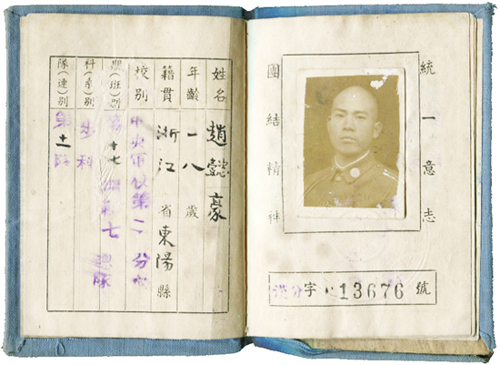 統一意志
團結精神
字 13676 號
姓名 趙懿豪
年齡 一八歲
籍貫 浙江省東陽縣
校別 中央軍校第二分校
期(班)別 第十七期第七總隊
科(系)別 步科
隊(連)別 第十一隊